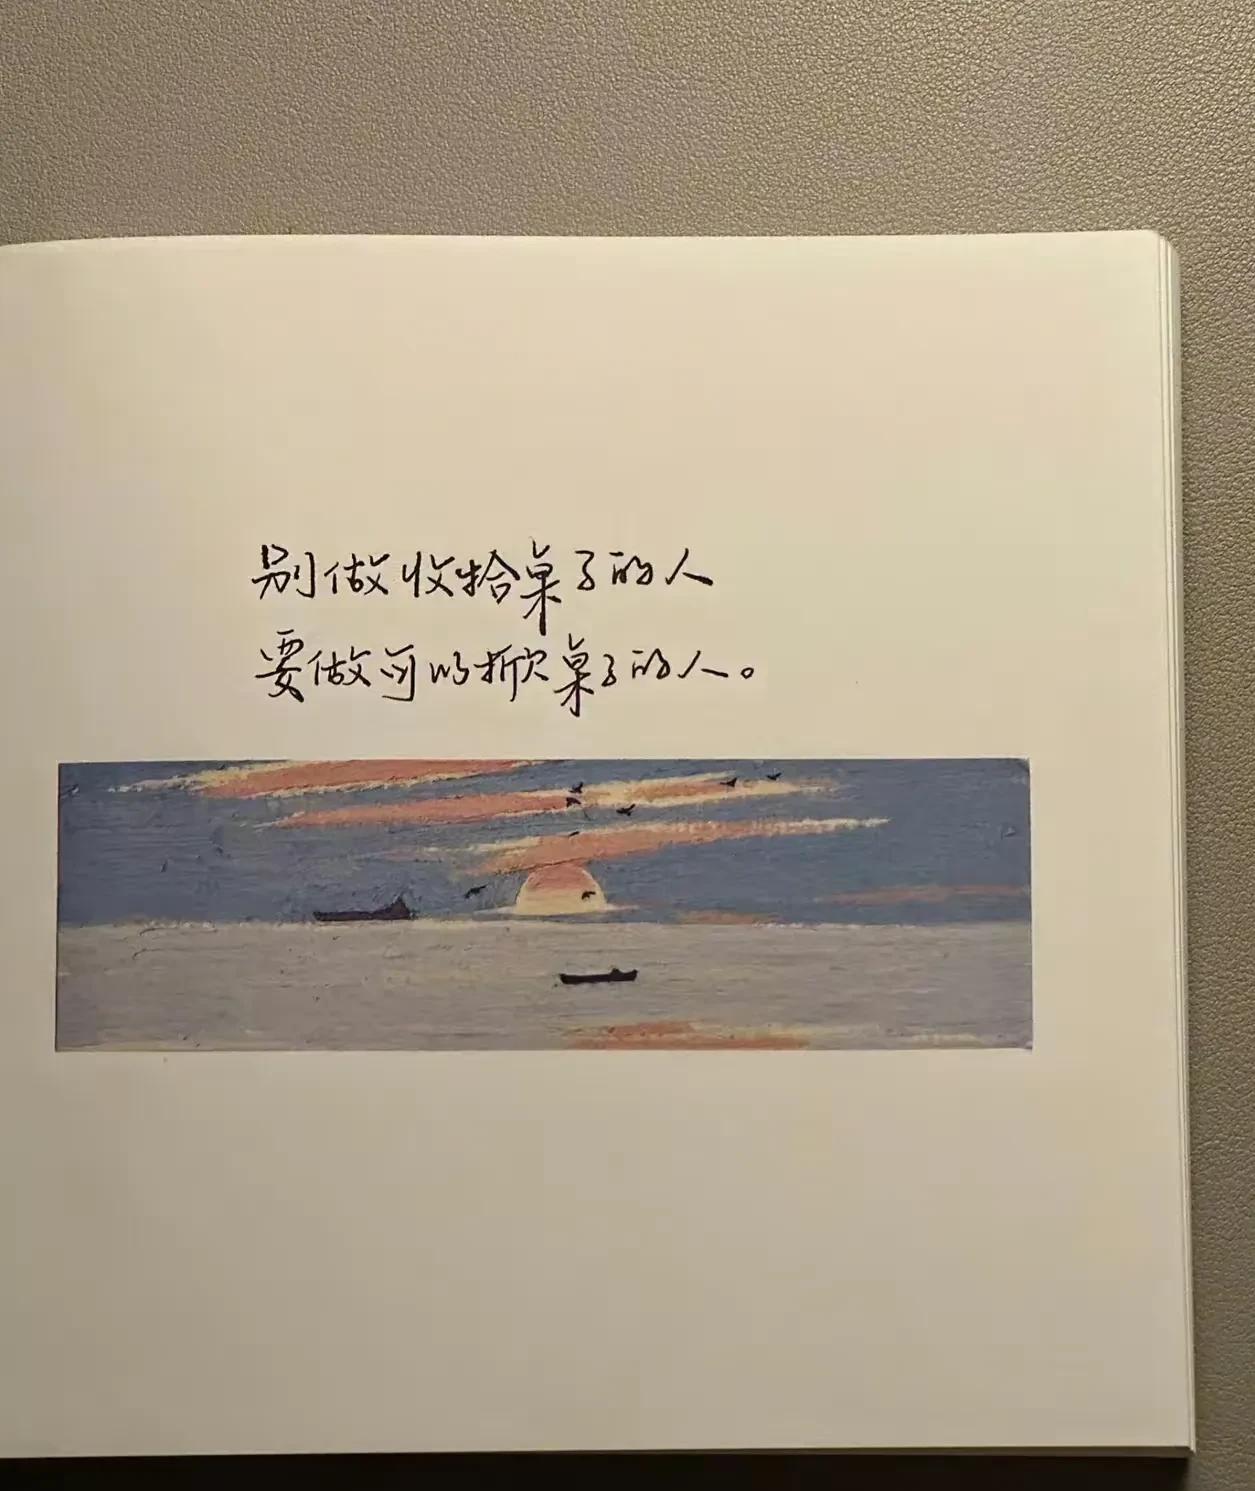 别做收拾桌子的人
要做可以掀桌子的人。